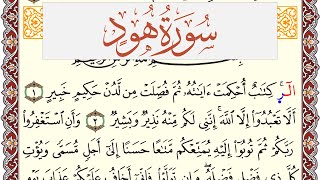 سُورَةُ هُودٍ
الٓر ۚ كِتَٰبٌ أُحْكِمَتْ ءَايَٰتُهُۥ ثُمَّ فُصِّلَتْ مِن لَّدُنْ حَكِيمٍ خَبِيرٍ ١
أَلَّا تَعْبُدُوٓا۟ إِلَّا ٱللَّهَ ۚ إِنَّنِى لَكُم مِّنْهُ نَذِيرٌ وَبَشِيرٌ ٢ وَأَنِ ٱسْتَغْفِرُوا۟
رَبَّكُمْ ثُمَّ تُوبُوٓا۟ إِلَيْهِ يُمَتِّعْكُم مَّتَٰعًا حَسَنًا إِلَىٰٓ أَجَلٍ مُّسَمًّى وَيُؤْتِ
كُلَّ ذِى فَضْلٍ فَضْلَهُۥ ۖ وَإِن تَوَلَّوْا۟ فَإِنِّىٓ أَخَافُ عَلَيْكُمْ عَذَابَ يَوْمٍ